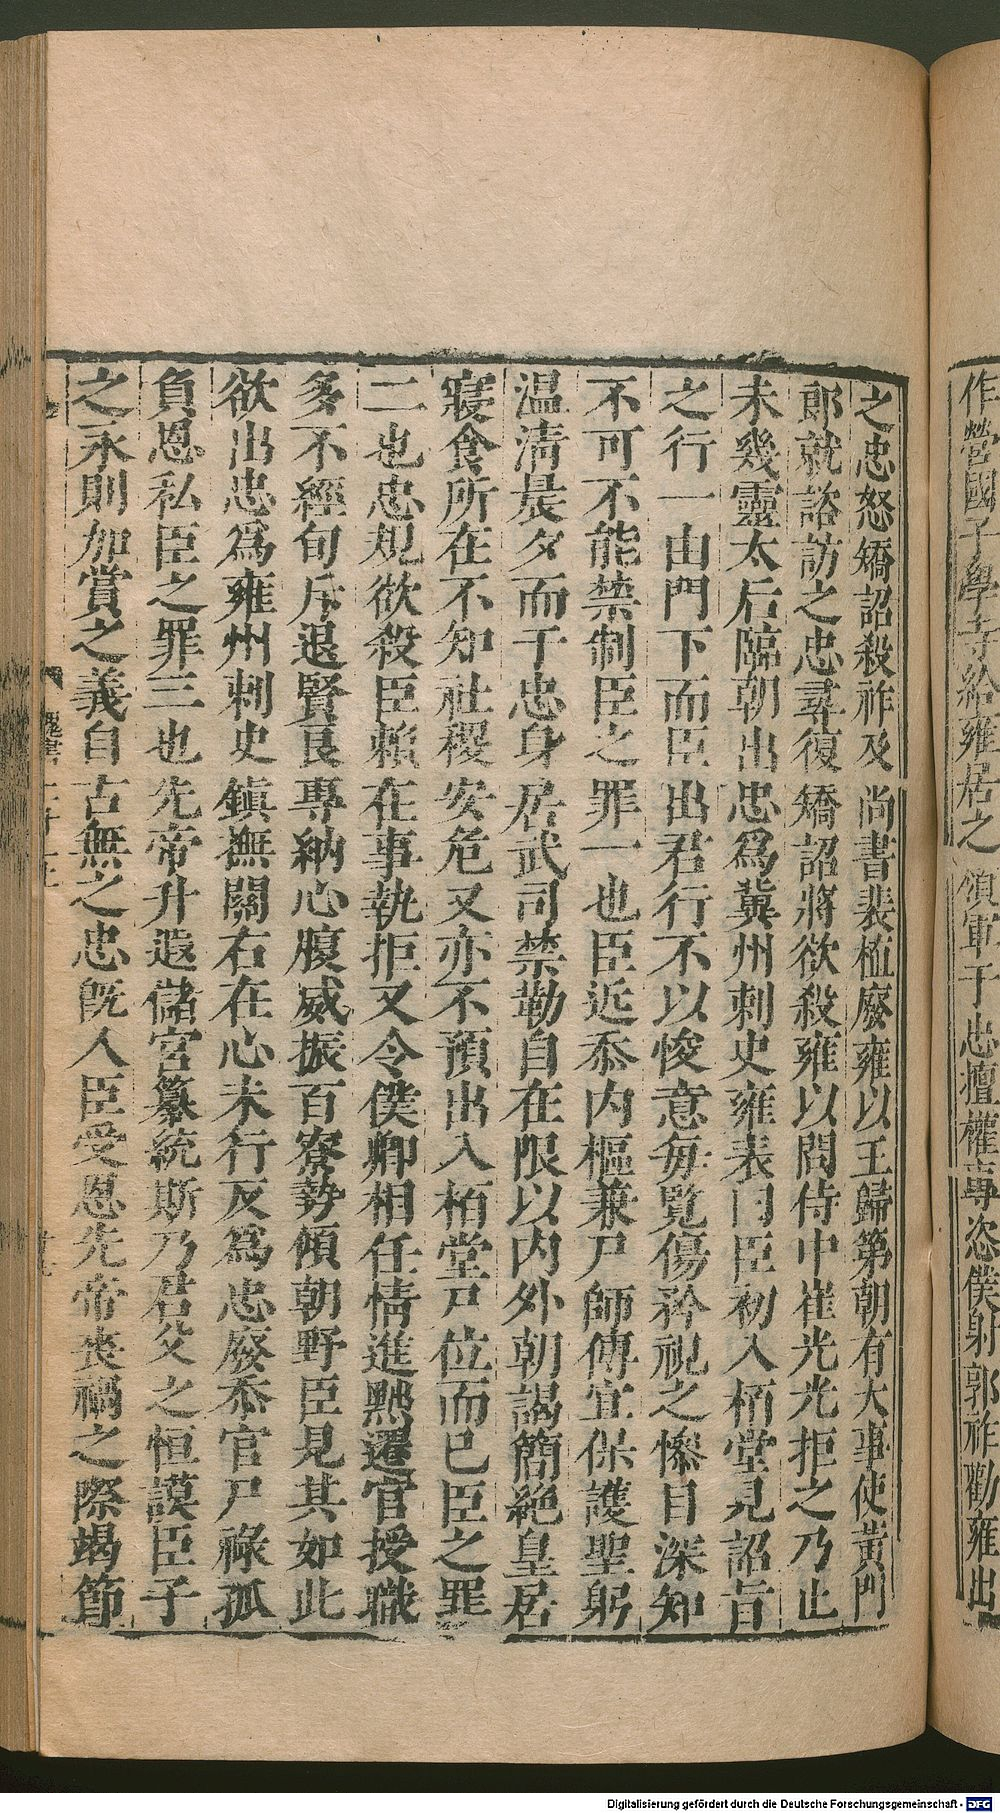 作營國子學寺給雍居之領軍于忠擅權專恣僕射郭祚勸雍出
之忠怒矯詔殺祚及尚書裴植廢雍以王歸第朝有大事使黃門
郎就諮訪之忠尋復矯詔將欲殺雍以問侍中崔光光拒之乃止
未幾靈太后臨朝出忠爲冀州刺史雍表曰臣初入栢堂見詔旨
之行一由門下而臣出君行不以悛意每覽傷矜視之慘目深知
不可不能禁制臣之罪一也臣近忝內樞兼尸師傅宜保護聖躬
溫清晨夕而于忠身居武司禁勒自在限以內外朝謁簡絕皇居
寢食所在不知社稷安危又亦不預出入栢堂尸位而已臣之罪
二也忠規欲殺臣賴在事執拒又令僕卿相任情進黜遷官授職
多不經旬斥退賢良專納心腹威振百寮勢傾朝野臣見其如此
欲出忠爲雍州刺史鎮撫關右在心未行反爲忠廢忝官尸祿孤
負恩私臣之罪三也先帝升遐儲宮纂統斯乃君父之恒謨臣子
之永則加賞之義自古無之忠既人臣受恩先帝喪禍之際竭節
Digitalisierung gefördert durch die Deutsche Forschungsgemeinschaft - DFG